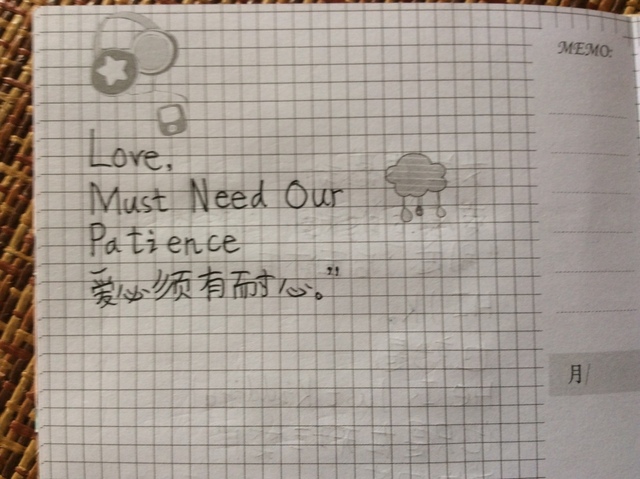 MEMO:
Love,
Must Need Our
Patience
爱必须有耐心。”
月/